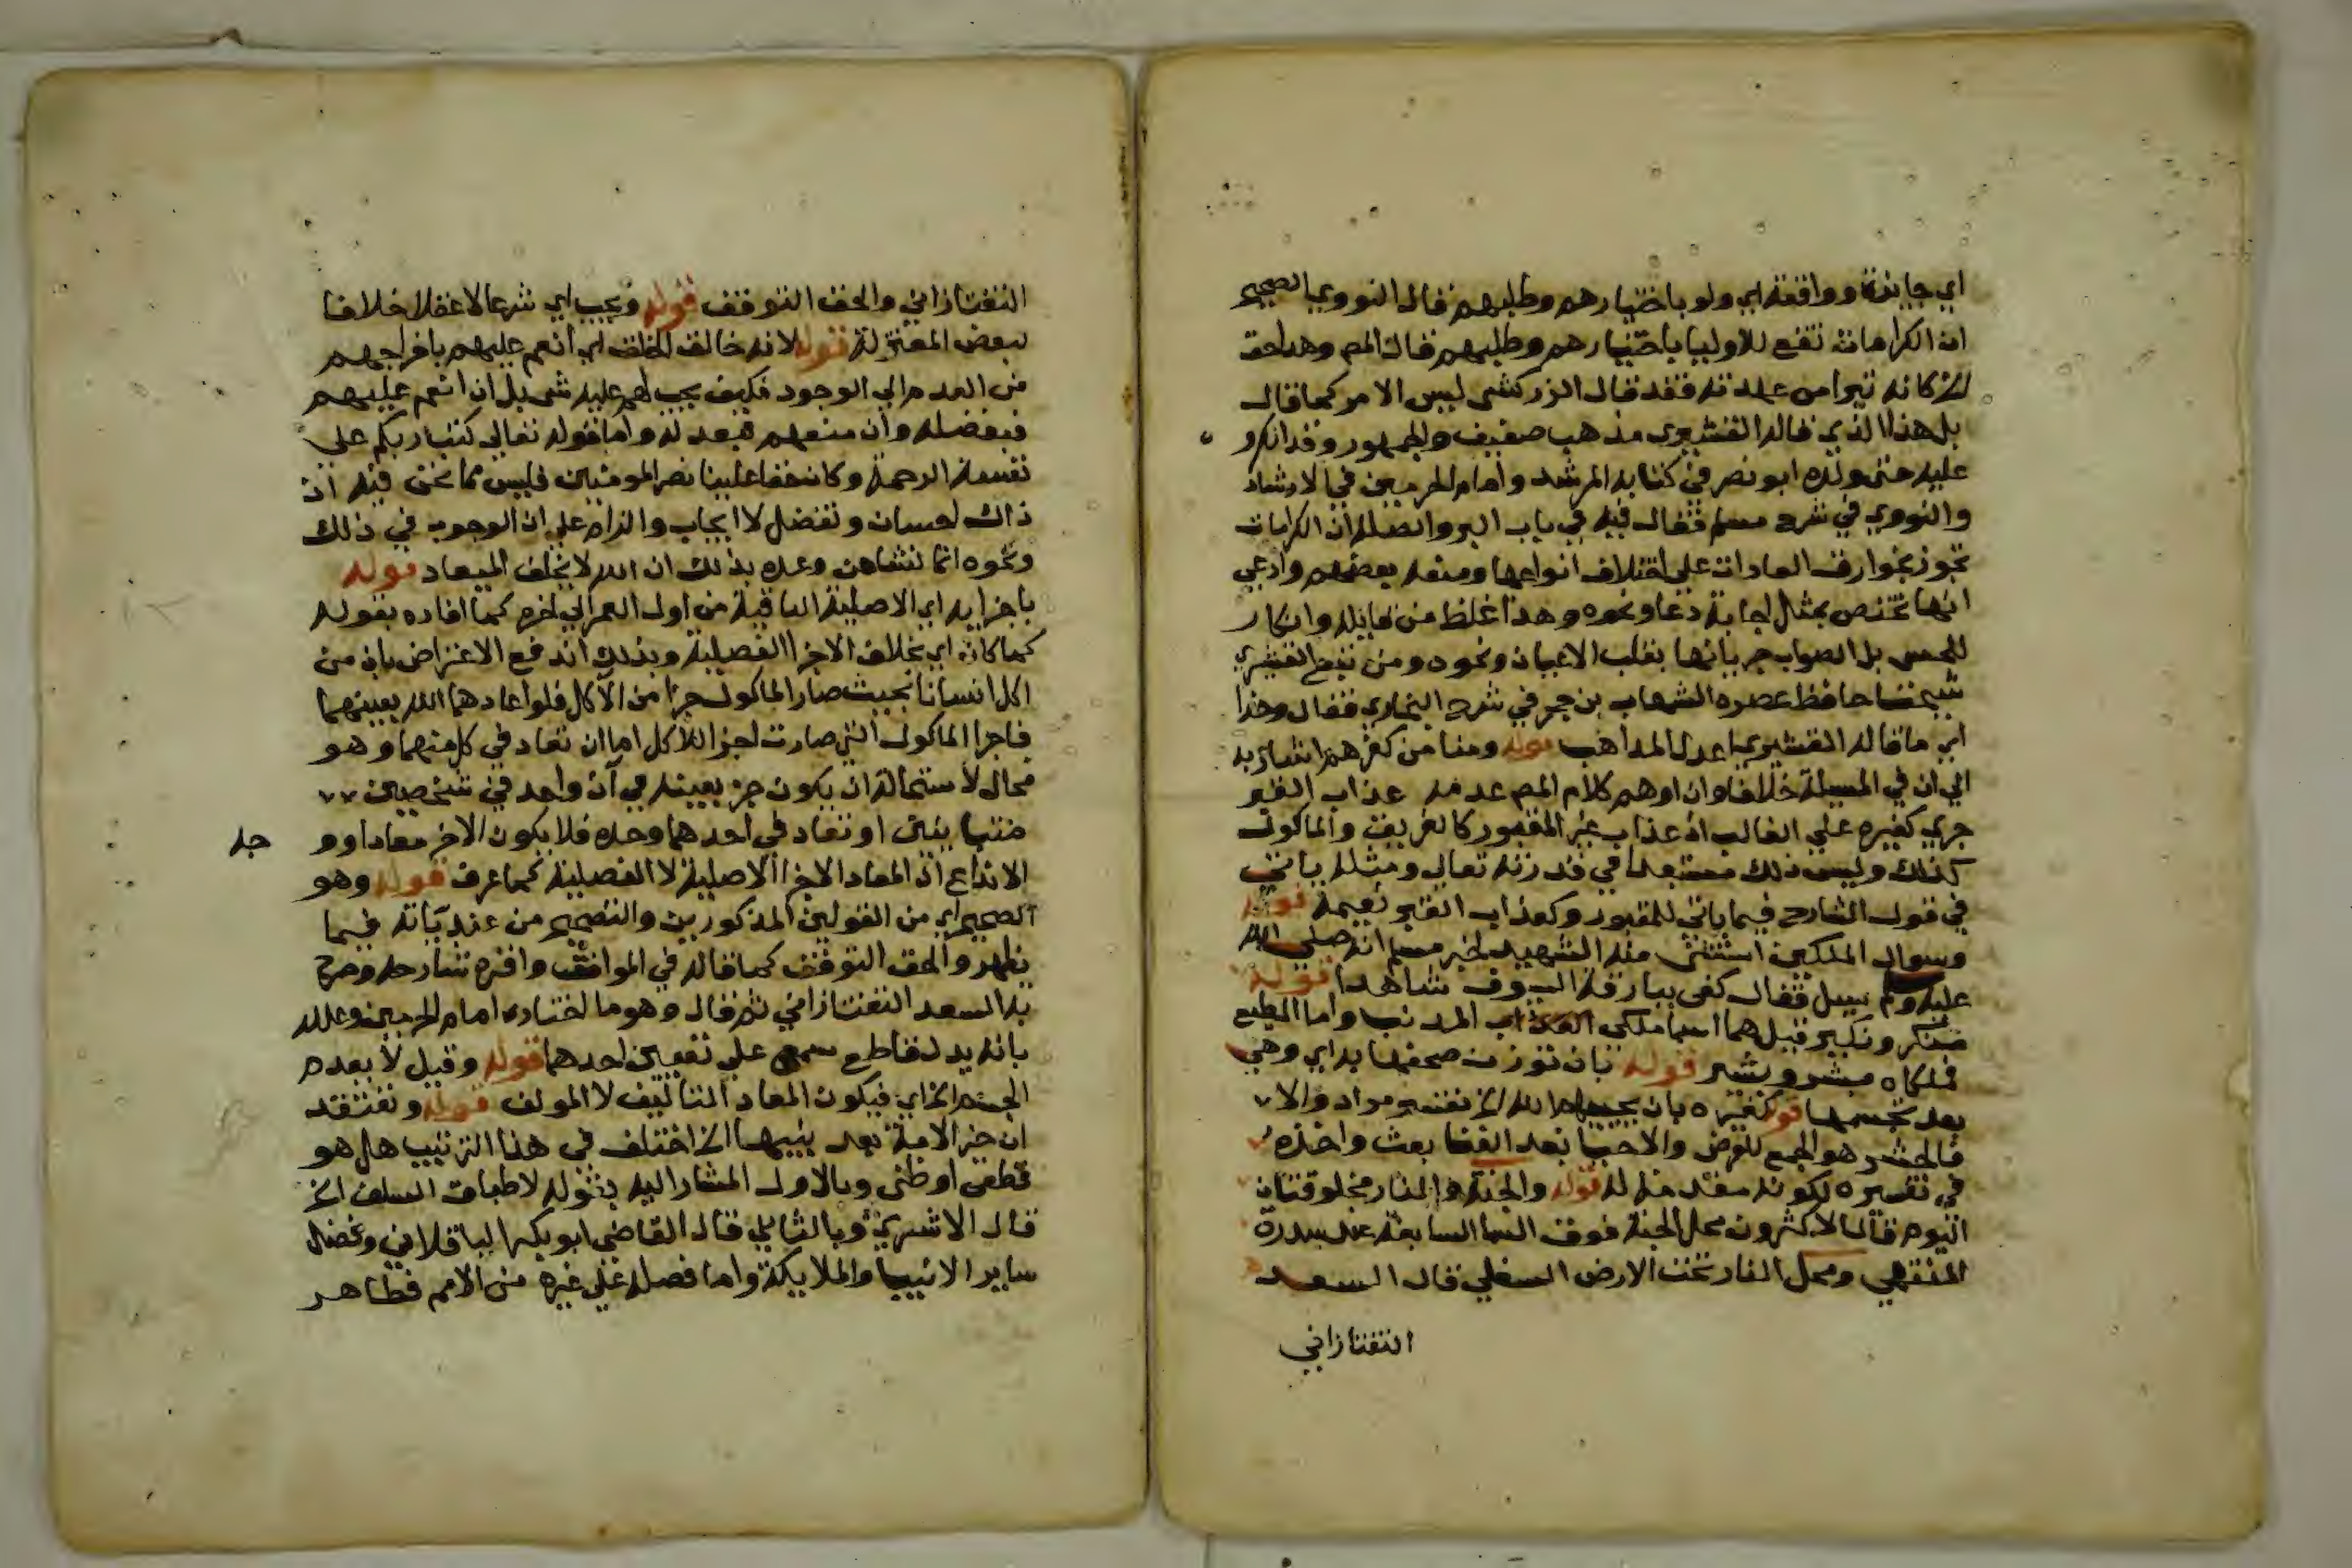 اي جايزة وواقعة اي ولو باختيارهم وطلبهم قال النووي الصحيح
ان الكرامات تقع للاوليا باختيارهم وطلبهم قال المص وهذا حق
بل هذا الذي قاله القشيري مذهب ضعيف والجمهور وقد انكرو
عليه حتى ولده ابو نصر في كتابه المرشد وامام الحرمين في الارشاد
والنووي في شرح مسلم فقال فيه في باب البر والصلة ان الكرامات
تجوز بخوارق العادات على اختلاف انواعها ومنعه بعضهم وادعي
انها تختص بمثل اجابة دعا ونحوه وهذا غلط من قايله وانكار
للحس بل الصواب جريانها بقلب الاعيان ونحوه ومن تبع القشيري
شيخنا حافظ عصره الشهاب بن حجر في شرح البخاري فقال وهذا
اي ما قاله القشيري اعدل المذاهب قوله ومنا من كفرهم اشار به
الي ان في المسيلة خلافا وان اوهم كلام المص عدمه عذاب القبر
جري كغيره علي الغالب اذ عذاب غير المقبور كالغريق والماكول
كذلك وليس ذلك مستبعدا في قدرته تعالي ومثله ياتي
في قول الشارح فيما ياتي للمقبور وكعذاب القبر نعيمه قوله
وسوال الملكين استثنى منه الشهيد لخبر مسلم انه صلى الله
عليه وم سيل فقال كفى ببارقة السيوف شاهدا قوله
منكر ونكير قيل هما اسما ملكي المذنب واما المطيع
فملكاه مبشر وبشير قوله بان توزن صحفها به اي وهي
بعد تجسمها قوله كغيره بان يحييهم الله الخ تفسير مراد والا
فالحشر هو الجمع للعرض والاحيا بعد الفنا بعث واخذه
في تفسيره لكونه مقدمة له قوله والجنة والنار مخلوقتان
اليوم قال الاكثرون محل الجنة فوق السما السابعة عند سدرة
المنتهي ومحل النار تحت الارض السفلي قال السعد
التفتازاني
التفتازاني والحق التوقف قوله ويجب اي شرعا لا عقلا خلافا
لبعض المعتزلة قوله لانه خالق الخلق اي انعم عليهم باخراجهم
من العدم الي الوجود فكيف يجب لهم عليه شي بل ان انعم عليهم
فبفضله وان منعهم فبعدله واما قوله تعالي كتب ربكم على
نفسه الرحمة وكان حقا علينا نصر المومنين فليس مما نحن فيه اذ
ذاك احسان وتفضل لا ايجاب والزام علي ان الوجوب في ذلك
ونحوه انما نشا من وعده بذلك ان الله لا يخلف الميعاد قوله
باجزايه اي الاصلية الباقية من اول العمر الي اخره كما افاده بقوله
كما كان اي بخلاف الاجزا الفضلية وبذلك اندفع الاعتراض بان من
اكل انسانا بحيث صار الماكول جزا من الاكل فلو اعادهما الله بعينهما
فاجزا الماكول التي صارت اجزا للاكل اما ان تعاد في كل منهما وهو
محال لاستحالة ان يكون جز بعينه في آن واحد في شخصين
متباينين او تعاد في احدهما وحده فلا يكون الاخر معادا وو
جه
الاندفاع ان المعاد الاجزا الاصلية لا الفضلية كما عرف قوله وهو
الصحيح اي من القولين المذكورين والتصحيح من عندياته فيما
يظهر والحق التوقف كما قاله في المواقف واقره شارحه وصرح
به السعد التفتازاني ثم قال وهو ما اختاره امام الحرمين وعلله
بانه يدل قاطع سمعي علي تعيين احدهما قوله وقيل لا يعدم
الجسم الخ اي فيكون المعاد التاليف لا المولف قوله ونعتقد
ان خير الامة بعد نبيها الخ اختلف في هذا الترتيب هل هو
قطعي او ظني وبالاول المشار اليه بقوله لاطباق السلف الخ
قال الاشعري وبالثاني قال القاضي ابو بكر الباقلاني
ساير الانبيا والملايكة واما فضله علي غيره من الامم فظاهر